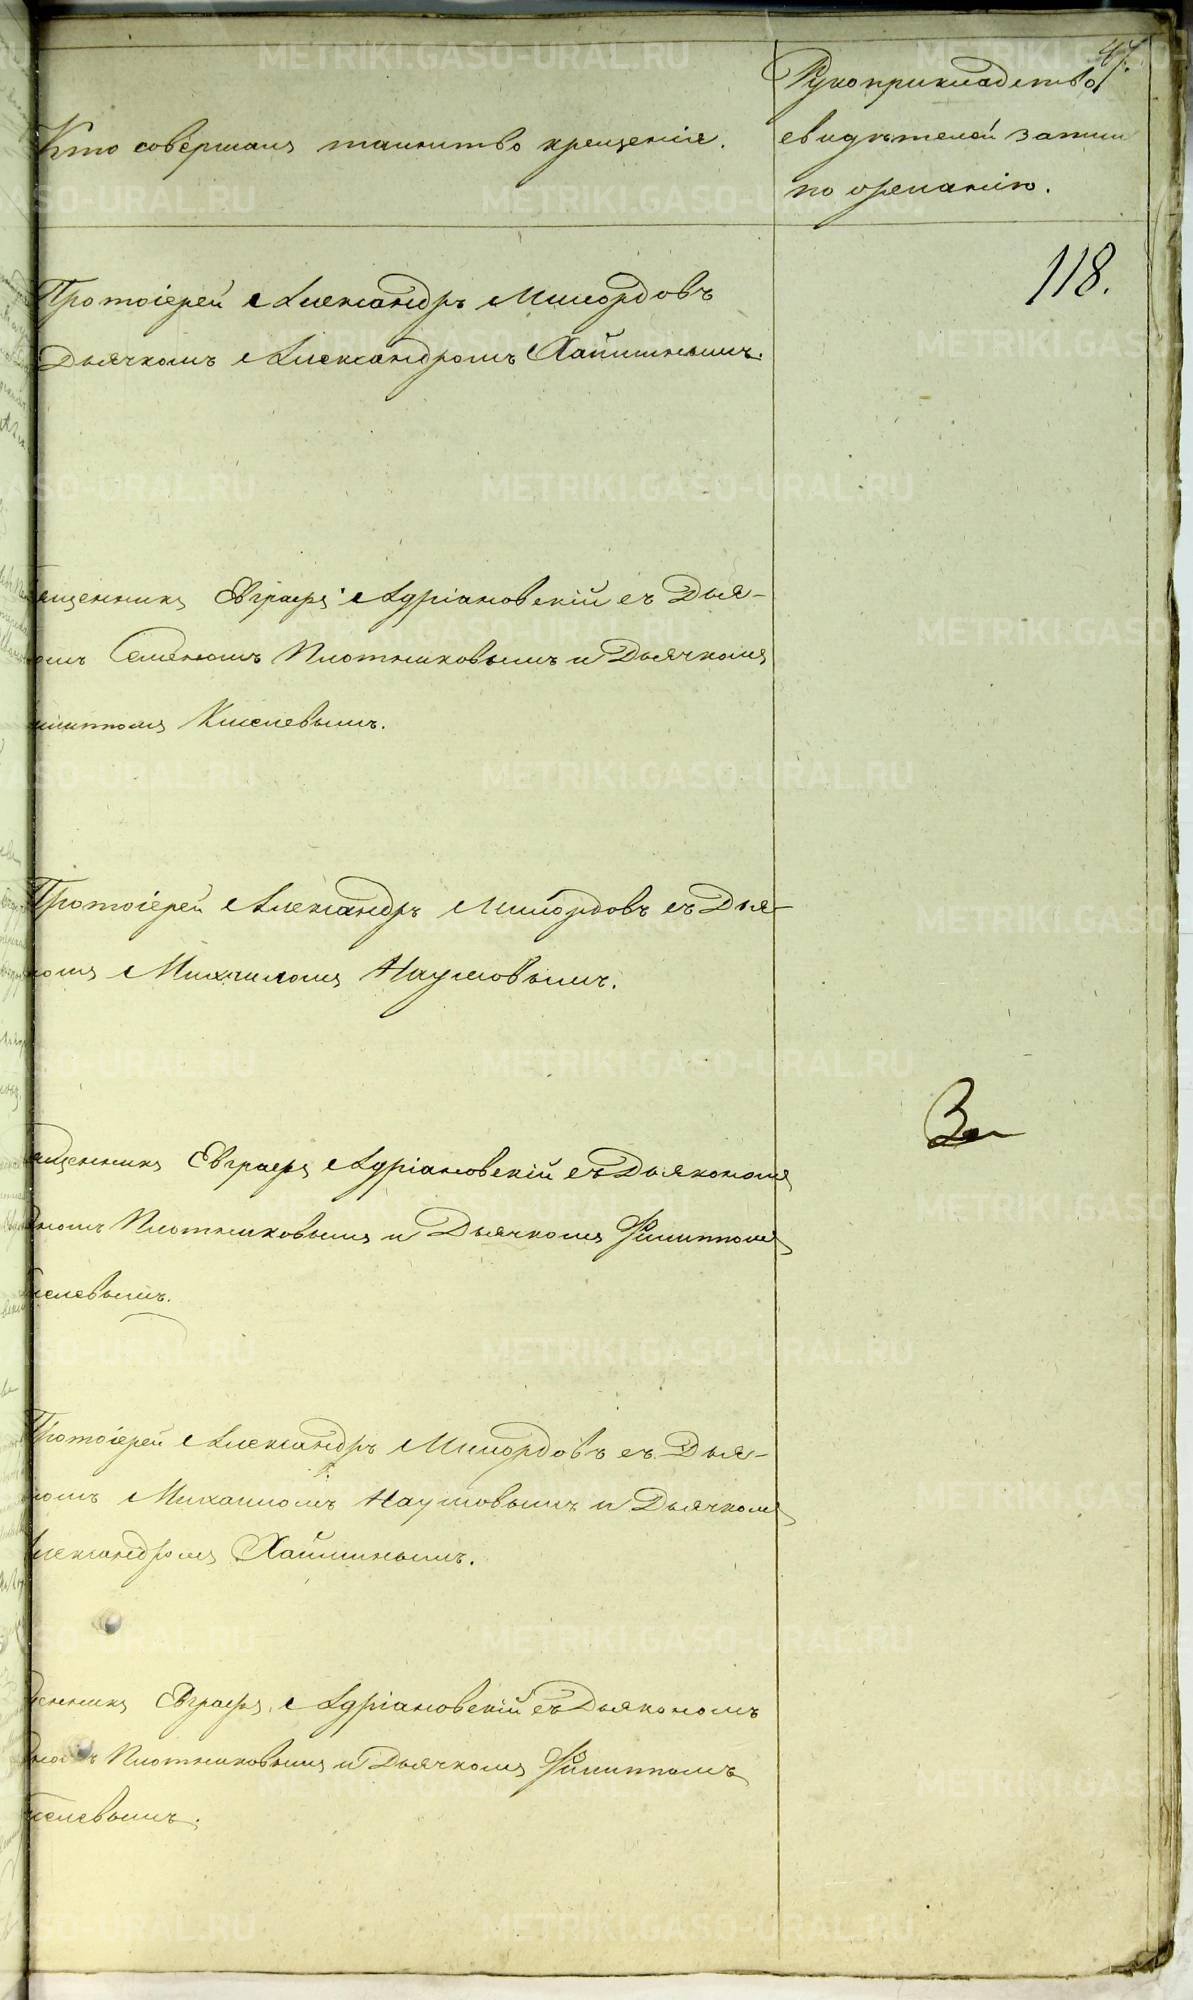 47.
Кто совершалъ таинство крещенія.
Рукоприкладство
свидѣтелей записи
по желанію.
118.
Протоіерей Александръ Милордовъ
Дьячкомъ Александромъ Хайминымъ.
ященникъ Евграфъ Адріановскій съ Дья-
омъ Семеномъ Плотниковымъ и Дьячкомъ
илиппомъ Киселевымъ.
Протоіерей Александръ Милордовъ съ Дья-
комъ Михаиломъ Наумовымъ.
ященникъ Евграфъ Адріановскій съ Дьякономъ
Плотниковымъ и Дьячкомъ Филиппомъ
иселевымъ.
Протоіерей Александръ Милордовъ съ Дья-
номъ Михаиломъ Наумовымъ и Дьячкомъ
лександромъ Хайминымъ.
щенникъ Евграфъ Адріановскій съ Дьякономъ
Плотниковымъ и Дьячкомъ Филиппомъ
иселевымъ.
METRIKI.GASO-URAL.RU